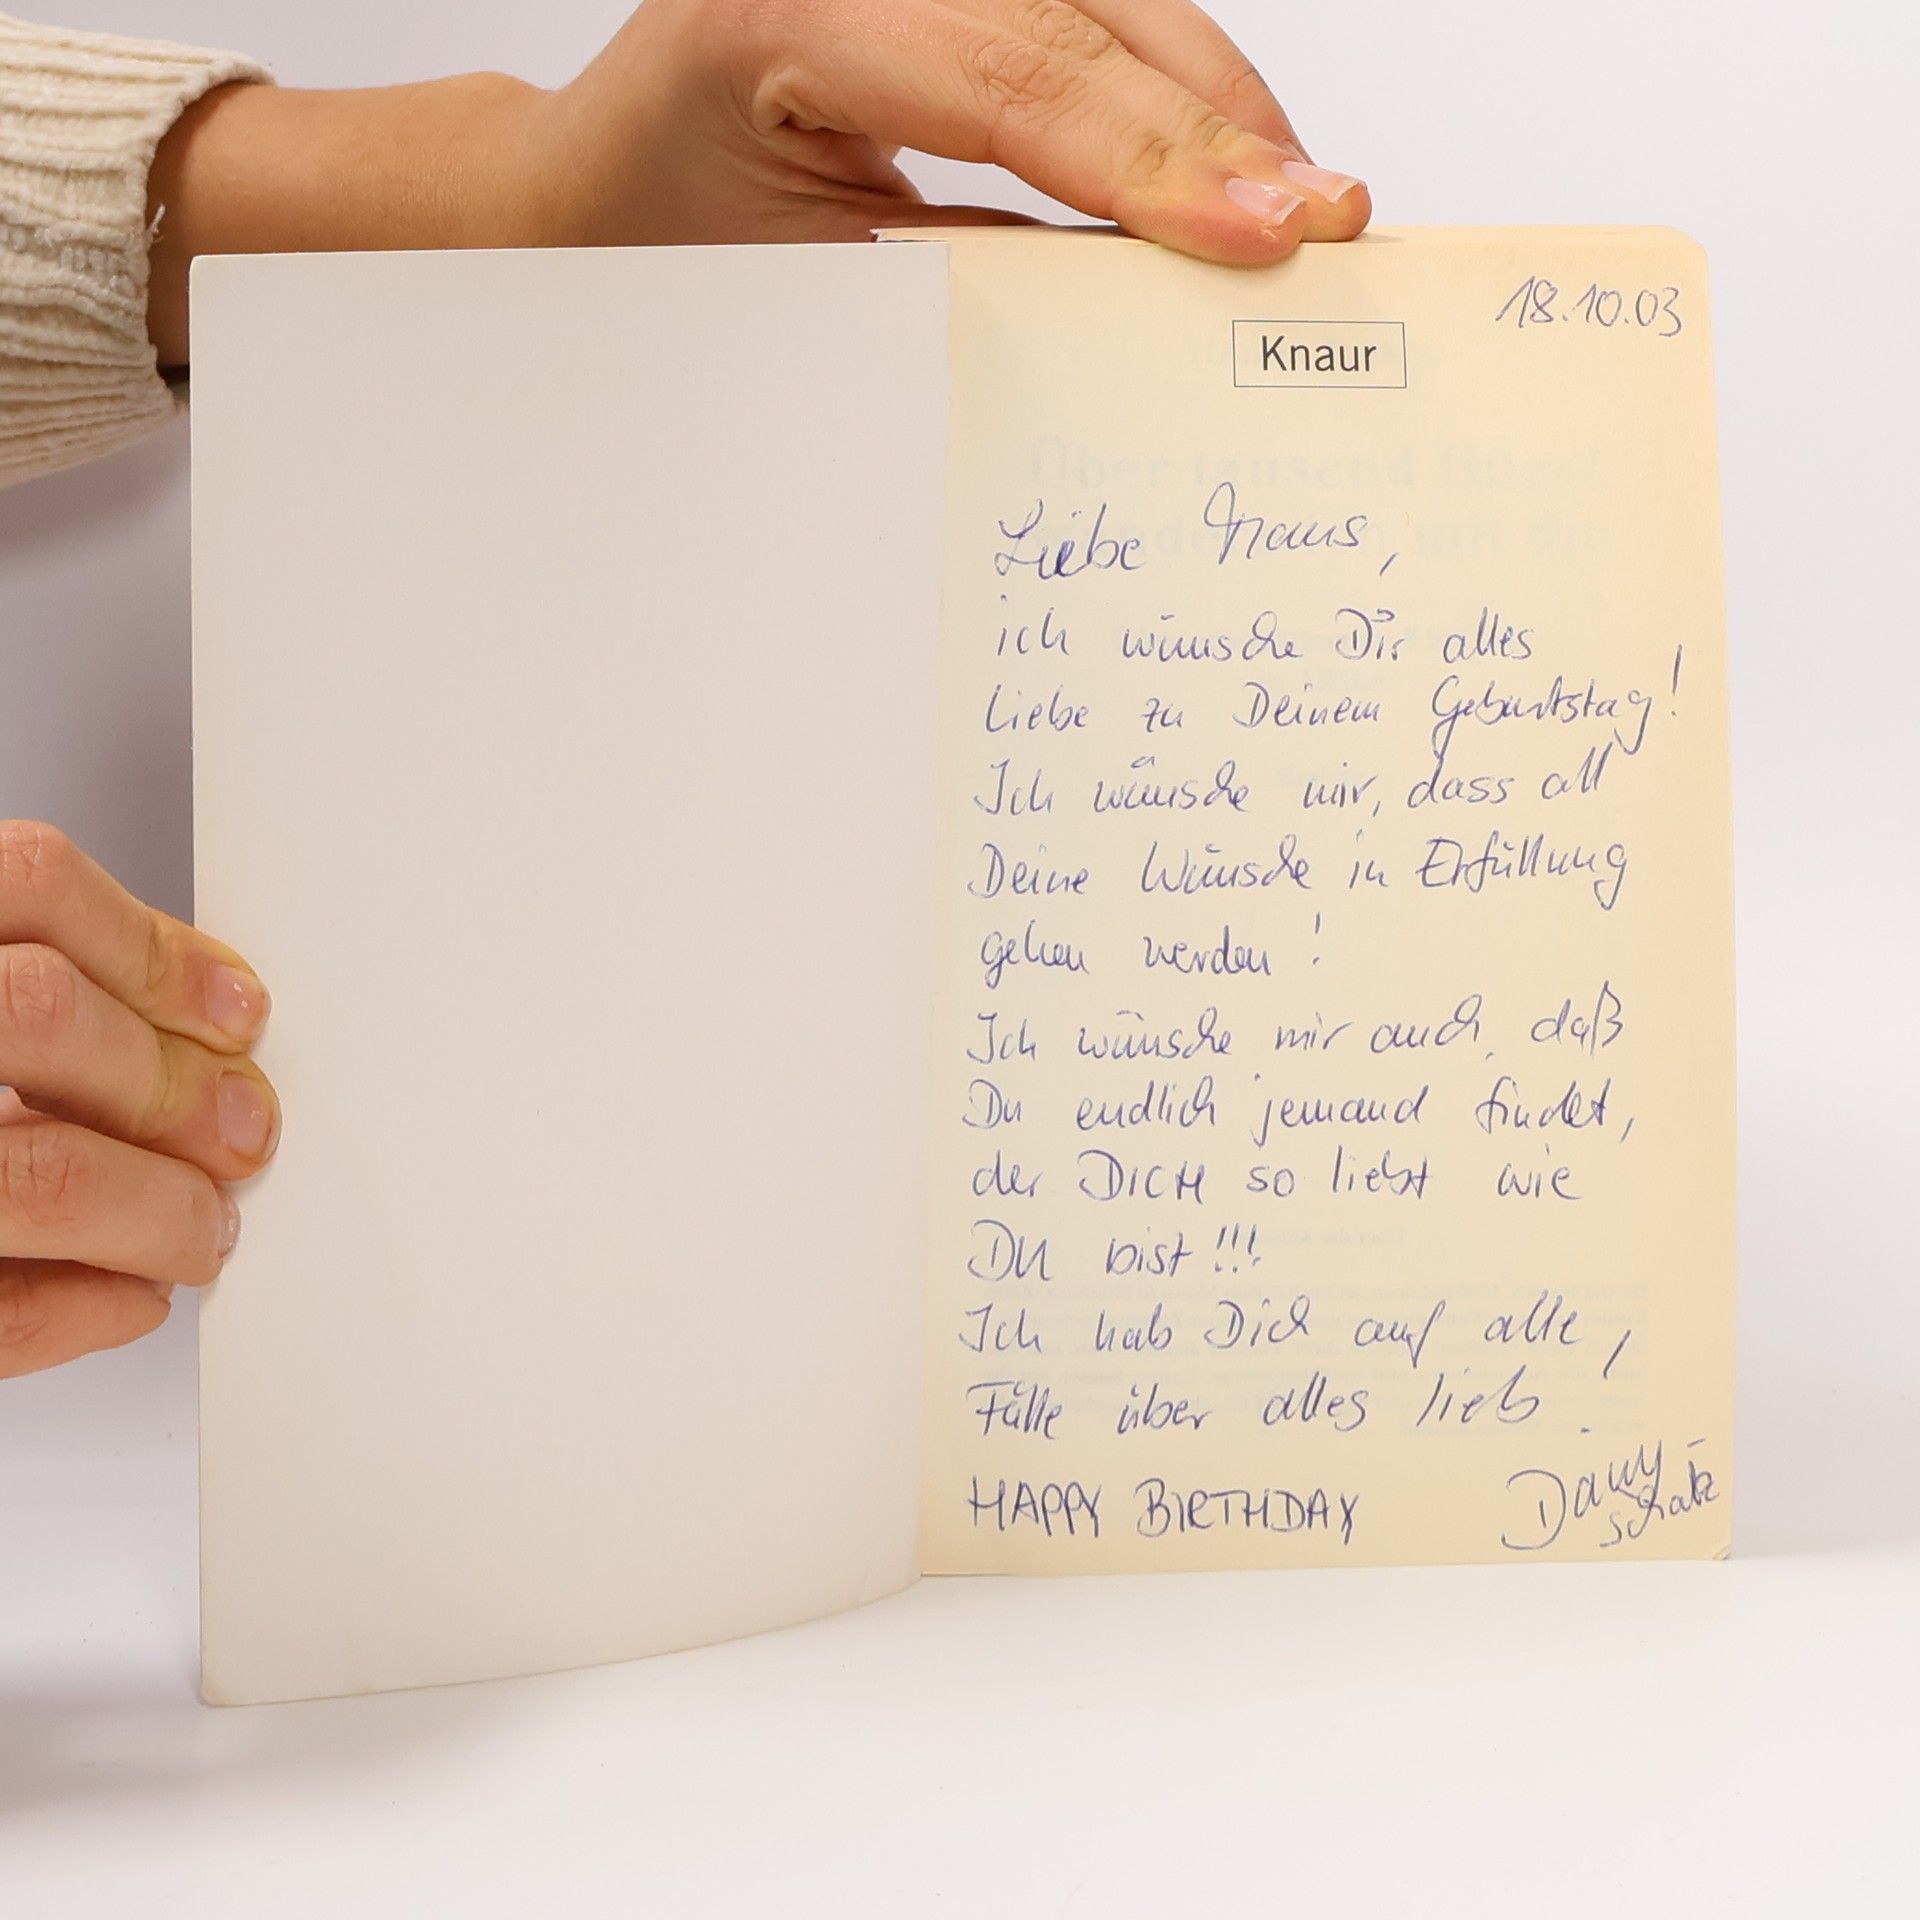 18.10.03
Knaur
Über tausend Hügel
Liebe Maus,
ich wünsche Dir alles
Liebe zu Deinem Geburtstag!
Ich wünsche mir, dass all
Deine Wünsche in Erfüllung
gehen werden!
Ich wünsche mir auch, daß
Du endlich jemand findet,
der DICH so liebt wie
DU bist!!!
Ich hab Dich auf alle,
Fälle über alles lieb.
HAPPY BIRTHDAY Dany
schatz